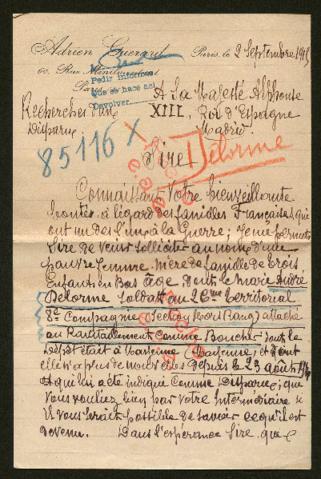 Adrien Guerard
60, Rue
Paris
Paris, le 2 Septembre 191
Pedir informes
que se hace así
Devolver.
Recherches d'un
Disparu
A Sa Majesté Alphonse
XIII, Roi d'Espagne
Madrid
85116 X
Sire!
Delorme
Connaissant Votre bienveillante
bonté à l'égard des familles Françaises, qui
ont un des leurs à la Guerre; je me permets
Sire de venir solliciter au nom d'une
pauvre femme mère de famille de trois
Enfants en Bas âge dont le mari André
Delorme Soldat au 26me territorial
8e Compagnie (Section Hors Rang) attaché
au Ravitaillement comme Boucher dont le
Dépôt était à Mayenne (Mayenne), et dont
elle n'a plus de nouvelles depuis le 29 août 1914
et qui lui a été indiqué comme Disparu, que
vous vouliez bien par votre Intermédiaire
il vous serait possible de savoir ce qu'il est
devenu. Dans l'espérance Sire, que